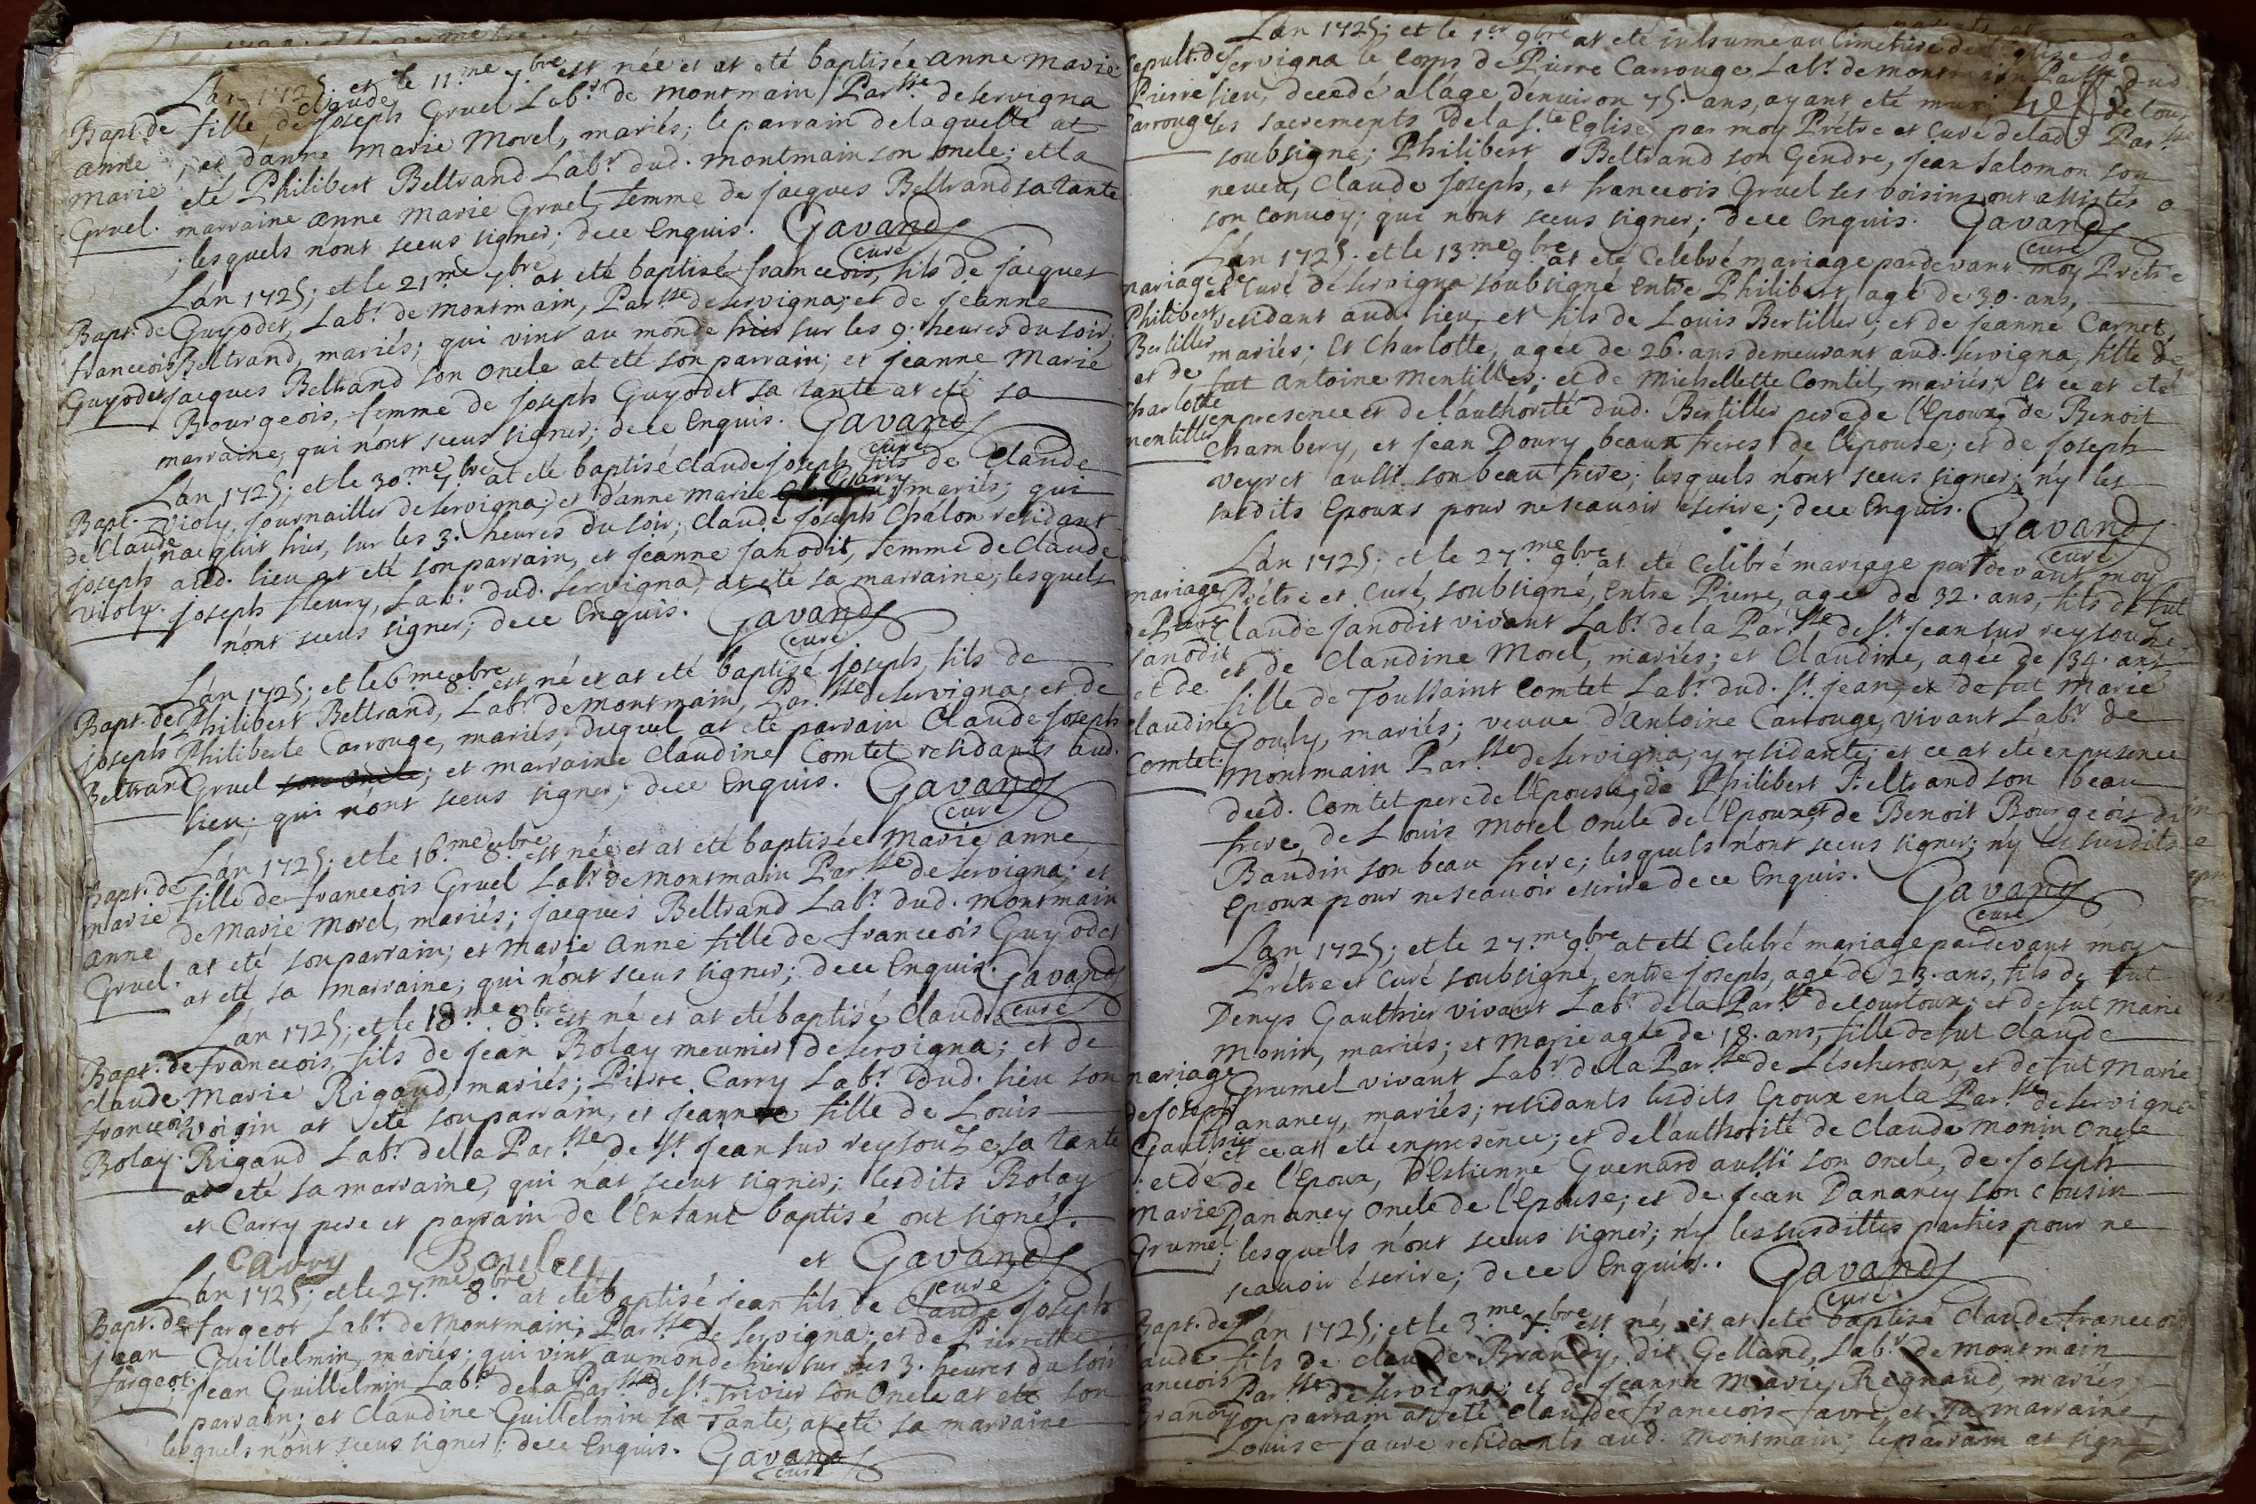 Lán 1725; et le 11.me 7.bre est née et at eté baptisée anne marie
Bapt. de fille de claude joseph Gruel Lab.r de montmain Par.sse de servigna
anne ; et d'anne marie Morel, mariés; le parrain de laquelle at
marie eté Philibert Beltrand Lab.r dud. montmain son oncle; et la
Gruel. marraine anne marie Gruel, femme de jacques Beltrand sa tante
; lesquels n'ont sceus signer; de ce Enquis. Gavand
curé
Lán 1725; et le 21.me 7.bre at eté baptisé franceois, fils de jacques
Bapt. de Guyodet, Lab.r de montmain, Par.sse de servigna; et de jeanne
franceois Beltrand, mariés; qui vint au monde hier sur les 9. heures du soir;
Guyodet jacques Beltrand son oncle at eté son parrain; et jeanne Marie
Bourgeois, femme de joseph Guyodet sa tante at eté sa
marraine, qui n'ont sceus signer; de ce Enquis. Gavand
curé
Lán 1725; et le 30.me 7.bre at eté baptisé claude joseph, fils de claude
Bapt. Violy, journailler de servigna; et d'anne marie Carry mariés; qui
de Claude nacquit hier, sur les 3. heures du soir; Claude joseph Chalon residant
joseph aud. lieu at eté son parrain, et jeanne janodit, femme de Claude
Violy. joseph fleury, Lab.r dud. servigna, at eté sa marraine; lesquels
n'ont sceus signer; de ce Enquis. Gavand
curé
Lán 1725; et le 6.me 8.bre est né et at eté baptisé joseph, fils de
Bapt. de Philibert Beltrand, Lab.r de montmain, Par.sse de servigna; et de
joseph Philiberte Carrouge, mariés; duquel at eté parrain Claude joseph
Beltrand Gruel son oncle; et marraine Claudine Comtet residants aud.
lieu; qui n'ont sceus signer; de ce Enquis. Gavand
curé
Lán 1725; et le 16.me 8.bre est née et at eté baptisée Marie anne
Bapt. de fille de franceois Gruel Lab.r de montmain Par.sse de servigna; et
marie de Marie Morel, mariés; jacques Beltrand Lab.r dud. montmain
anne at eté son parrain; et marie anne fille de franceois Guyodet
Gruel. at eté sa marraine; qui n'ont sceus signer; de ce Enquis. Gavand
curé
Lán 1725; et le 18.me 8.bre est né et at eté baptisé Claude
Bapt. de franceois, fils de jean Rolay meunier de servigna; et de
claude Marie Rigaud, mariés; Pierre Carry Lab.r dud. lieu son
franceois voisin at eté son parrain, et jeanne fille de Louis
Rolay. Rigaud Lab.r de la Par.sse de S.t jean sur reysouze, sa tante
at eté sa marraine, qui n'at sceut signer; lesdits Rolay
et Carry pere et parrain de l'Enfant baptisé ont signés.
Carry et Gavand
curé
Lán 1725; et le 27.me 8.bre at eté baptisé jean fils de Claude joseph
Bapt. de fargeot Lab.r de Montmain; Par.sse de servigna; et de Pierrette
jean Guillelmin, mariés; qui vint au monde hier sur les 3. heures du soir
fargeot. ; jean Guillelmin Lab.r de la Par.sse de S.t Trivier son Oncle at eté son
parrain; et Claudine Guillelmin sa Tante, at eté sa marraine
lesquels n'ont sceus signer; de ce Enquis. Gavand
curé
Lán 1725; et le 1.er 9.bre at eté inhumé au Cimetiere de l'Eglise de
sepult. de servigna le corps de Pierre Carrouge Lab.r de montmain Par.sse dud
Pierre lieu, decedé a l'age d'environ 75. ans, ayant eté muni de tous
Carrouge les sacrements de la S.te Eglise, par moy Prêtre et Curé de lad. Par.sse
soubsigné; Philibert Beltrand son Gendre, jean salomon son
neveu, Claude joseph, et franceois Gruel ses voisins ont assistés a
son convoy; qui n'ont sceus signer; de ce Enquis. Gavand
curé
Lán 1725. et le 13.me 9.bre at eté Celebré mariage pardevant moy Prêtre
mariage de et Curé de servigna soubsigné entre Philibert, agé de 30. ans,
Philibert residant aud. lieu, et fils de Louis Bertiller; et de jeanne Carnet,
Bertiller mariés; et Charlotte, agée de 26. ans demeurant aud. servigna, fille de
et de fut Antoine Mentiller; et de Michellette Comtet, mariés; et ce at eté
Charlotte en presence et de l'authorité dud. Bertiller pere de l'Epoux, de Benoit
mentiller Chambery, et jean Doury beaux freres de l'epouse; et de joseph
veyret aussi son beau frere; lesquels n'ont sceus signer; n'y les
susdits Epouxs pour ne scavoir escrire; de ce Enquis. Gavand
curé
Lán 1725; et le 27.me 9.bre at eté Celebré mariage pardevant moy
mariage Prêtre et Curé, soubsigné, Entre Pierre, agée de 32. ans, fils de fut
de Pierre Claude janodit vivant Lab.r de la Par.sse de S.t jean sur reysouze
janodit et de Claudine Morel, mariés; et Claudine, agée de 34. ans
et de fille de Toussaint Comtet Lab.r dud. S.t jean, et de fut Marie
Claudine Gouly, mariés; veuve d'antoine Carrouge, vivant Lab.r de
Comtet. Montmain Par.sse de servigna, y residante; et ce at eté en presence
dud. Comtet pere de l'Epouse, de Philibert Beltrand son beau
frere, de Louis Morel oncle de l'Epoux, et de Benoit Bourgeois du
Baudin son beau frere; lesquels n'ont sceus signer; n'y les susdits
Epoux pour ne scavoir escrire de ce Enquis. Gavand
curé
Lan 1725; et le 27.me 9.bre at eté Celebré mariage pardevant moy
Prêtre et Curé soubsigné, entre joseph, agé de 23. ans, fils de fut
Denys Gauthier vivant Lab.r de la Par.sse de courtoux; et de fut Marie
Monin, mariés; et Marie agée de 18. ans, fille de fut Claude
mariage Grumel vivant Lab.r de la Par.sse de Lescheroux, et de fut Marie
de joseph Dananey, mariés; residants lesdits Epoux en la Par.sse de servigna
Gauthier et ce at eté en presence; et de l'authorité de Claude Monin Oncle
et de de l'Epoux, d'Estienne Guenard aussi son oncle, de joseph
Marie Dananey Oncle de l'Epouse; et de jean Dananey son cousin
Grumel ; lesquels n'ont sceus signer; n'y les susdittes parties pour ne
scavoir escrire; de ce Enquis. Gavand
curé
Bapt. de Lán 1725; et le 3.me X.bre est né, et at eté baptisé Claude franceois
fils de claude Brandy, dit Gelland, Lab.r de montmain
Par.sse de servigna; et de jeanne Marie Regnaud, mariés
Brandy son parrain at eté Claude franceois favre, et sa marraine
Louise favre residants aud. montmain; le parrain at sign